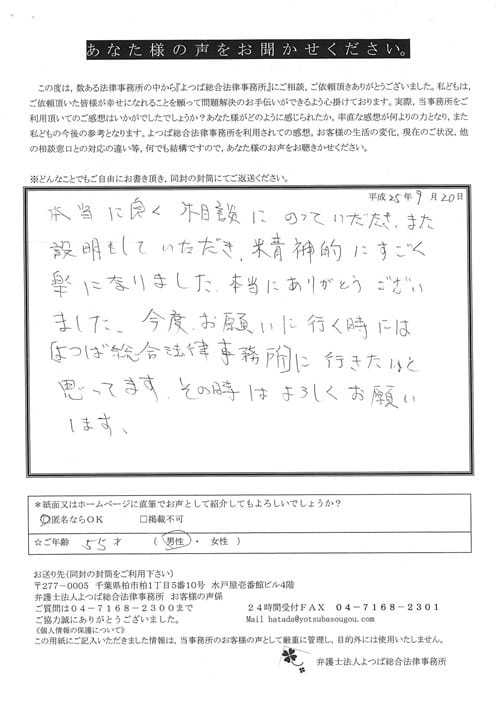 あなた様の声をお聞かせください。
この度は，数ある法律事務所の中から『よつば総合法律事務所』にご相談，ご依頼頂きありがとうございました。私どもは，
ご依頼頂いた皆様が幸せになれることを願って問題解決のお手伝いができるよう心掛けております。実際，当事務所をご
利用頂いてのご感想はいかがでしたでしょうか？あなた様がどのように感じられたか，率直な感想が何よりの力となり，また
私どもの今後の参考となります。よつば総合法律事務所を利用されての感想，お客様の生活の変化，現在のご状況，他
の相談窓口との対応の違い等，何でも結構ですので，あなた様のお声をお聴きかせください。
※どんなことでもご自由にお書き頂き，同封の封筒にてご返送ください。
平成25年9月20日
本当に良く相談にのっていただき、また
説明もしていただき、精神的にすごく
楽になりました。本当にありがとうござい
ました。今度、お願いに行く時には
[よつば総合法律事務所]に行きたいと
思ってます。その時はよろしくお願い
します、
＊紙面又はホームページに直筆でお声として紹介してもよろしいでしょうか？
□匿名ならOK □掲載不可
☆ご年齢 55才 （ 男性 ・ 女性 ）
お送り先（同封の封筒をご利用下さい）
〒277-0005 千葉県柏市柏1丁目5番10号 水戸屋壱番館ビル4階
弁護士法人よつば総合法律事務所 お客様の声係
ご質問は04-7168-2300まで 24時間受付FAX 04-7168-2301
ご協力誠にありがとうございました。 Mail hatada@yotsubasougou.com
《個人情報の保護について》
この用紙にご記入いただきました情報は，当事務所のお客様の声として厳重に管理し，目的外には使用いたしません。
弁護士法人よつば総合法律事務所